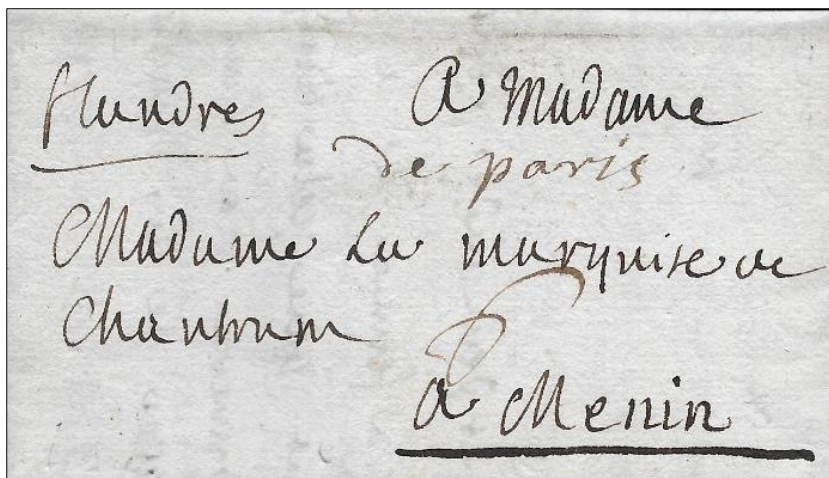 flandres A Madame
de paris
Madame La marquise de
6
à Menin